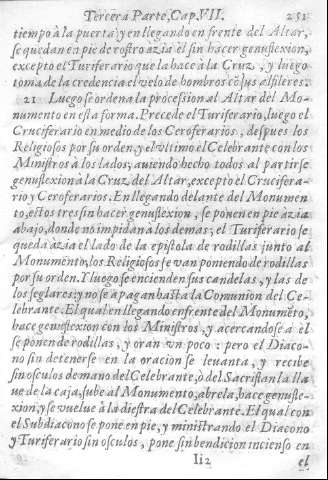 Tercera Parte, Cap. VII. 251
tiempo à la puerta: y en llegando en frente del Altar,
se quedan en pie de rostro azia èl sin hacer genuflexion,
excepto el Turiferario que la hace à la Cruz, y luego
toma de la credencia el velo de hombros cõ sus alfileres.
21 Luego se ordena la procession al Altar del Mo-
numento en esta forma. Precede el Turiferario, luego el
Cruciferario en medio de los Ceroferarios, despues los
Religiosos por su orden, y el vltimo el Celebrante con los
Ministros à los lados; auiendo hecho todos al partirse
genuflexion à la Cruz del Altar, excepto el Crucifera-
rio y Ceroferarios. En llegando delante del Monumen
to, estos tres sin hacer genuflexion, se ponen en pie àzia
abajo, donde no impidan à los demas; el Turiferario se
queda àzia el lado de la epistola de rodillas junto al
Monumento; los Religiosos se van poniendo de rodillas
por su orden. Y luego se encienden sus candelas, y las de
los seglares: y no se apagan hasta la Comunion del Ce-
lebrante. El qual en llegando enfrente del Monumẽto,
hace genuflexion con los Ministros, y acercandose à el
se ponen de rodillas, y oran vn poco: pero el Diaco-
no sin detenerse en la oracion se leuanta, y recibe
sin osculos de mano del Celebrante, ò del Sacristan la lla
ue de la caja, sube al Monumento, abrela, hace genufle-
xion, y se vuelue à la diestra del Celebrante. El qual con
el Subdiacono se pone en pie, y ministrando el Diacono
y Turiferario sin osculos, pone sin bendicion incienso en
Iiz el